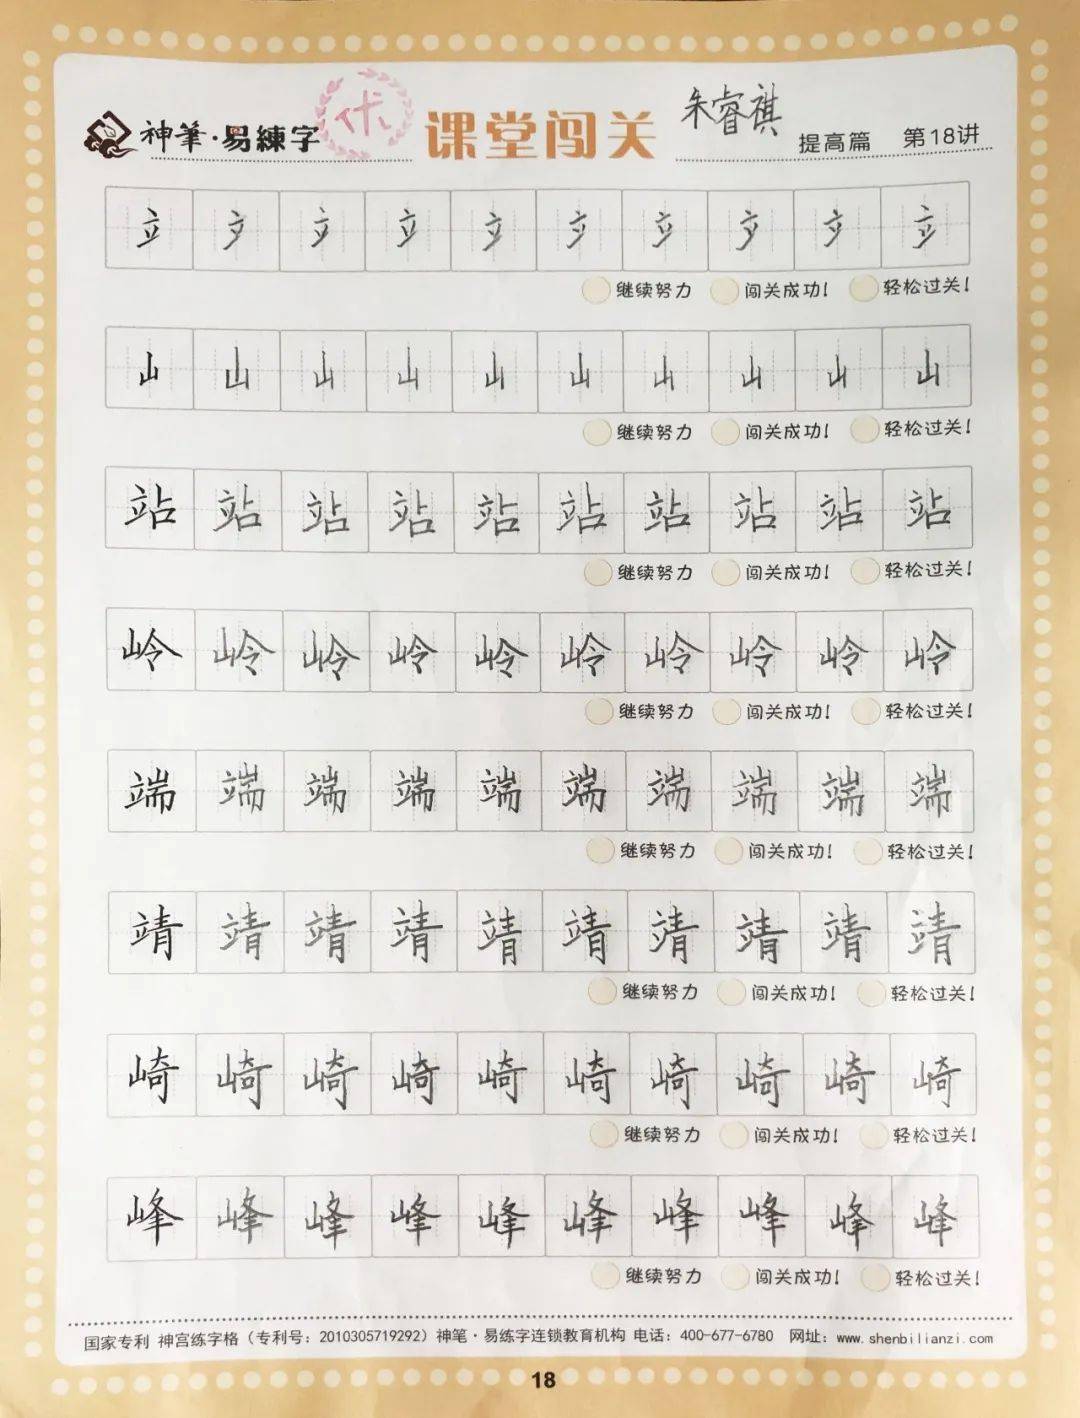 神筆·易練字 优 课堂闯关 朱睿祺 提高篇 第18讲
立 立 立 立 立 立 立 立 立 立
继续努力 闯关成功! 轻松过关!
山 山 山 山 山 山 山 山 山 山
继续努力 闯关成功! 轻松过关!
站 站 站 站 站 站 站 站 站 站
继续努力 闯关成功! 轻松过关!
岭 岭 岭 岭 岭 岭 岭 岭 岭 岭
继续努力 闯关成功! 轻松过关!
端 端 端 端 端 端 端 端 端 端
继续努力 闯关成功! 轻松过关!
靖 靖 靖 靖 靖 靖 靖 靖 靖 靖
继续努力 闯关成功! 轻松过关!
崎 崎 崎 崎 崎 崎 崎 崎 崎 崎
继续努力 闯关成功! 轻松过关!
峰 峰 峰 峰 峰 峰 峰 峰 峰 峰
继续努力 闯关成功! 轻松过关!
国家专利 神宫练字格（专利号：2010305719292）神笔·易练字连锁教育机构 电话：400-677-6780 网址：www.shenbilianzi.com
18